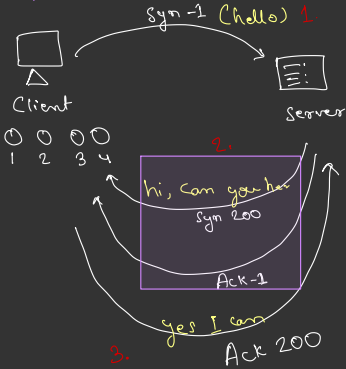 Syn-1 (hello) 1
Client
Server
1 2 3 4
2.
hi, can you
Syn 200
Ack-1
yes I can
3.
Ack 200